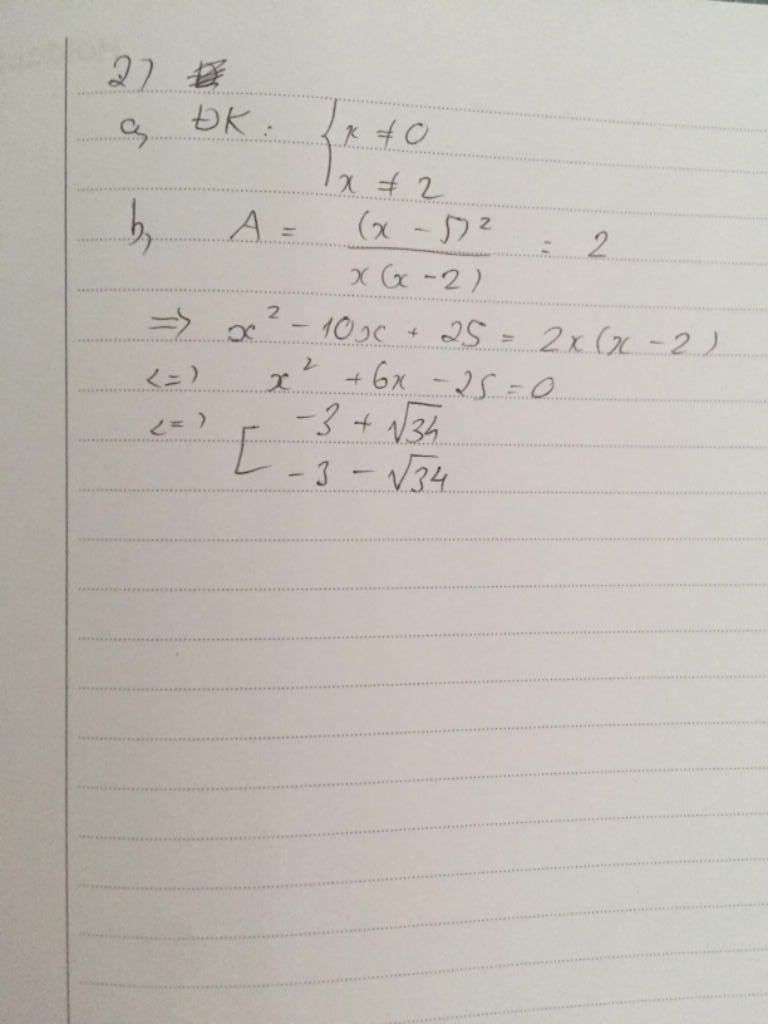 2)
a, ĐK: { x ≠ 0
x ≠ 2
b, A = (x - 5)² / x(x - 2) = 2
=> x² - 10x + 25 = 2x(x - 2)
<=> x² + 6x - 25 = 0
<=> [ -3 + √34
-3 - √34